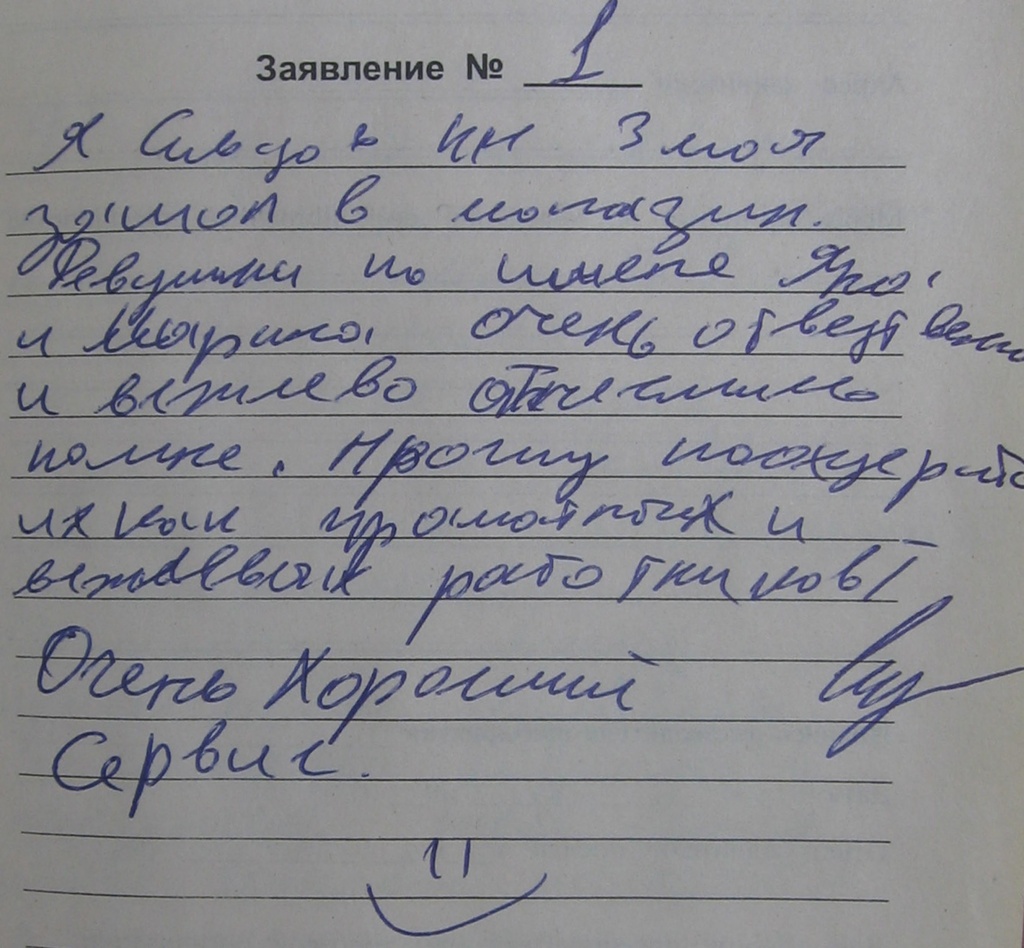 Заявление № 1
Я КН 3 мая
зашол в магазин.
Девушки по имене Яна
и Марина очень ответствено
и вежлево отнеслись
ко мне. Прошу поощерить
их как грамотных и
вежлевых работников!
Очень Хороший
Сервис.